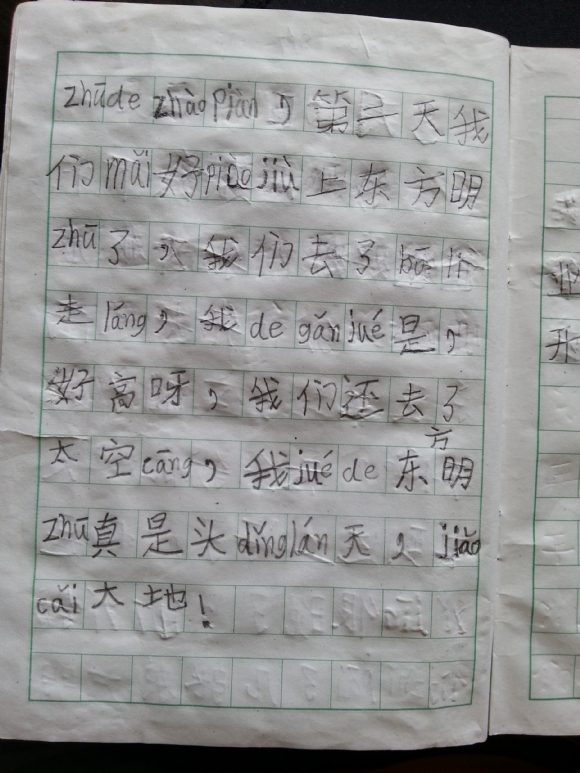 zhūde zhào piàn，第二天我
们mǎi好piào jiù上东方明
zhū了，我们去了bō lí
走láng，我de gǎn jué是，
好高呀，我们还去了
太空cāng，我jué de东方明
zhū真是头dǐng lán天，jiǎo
cǎi大地！
业
升
三
二